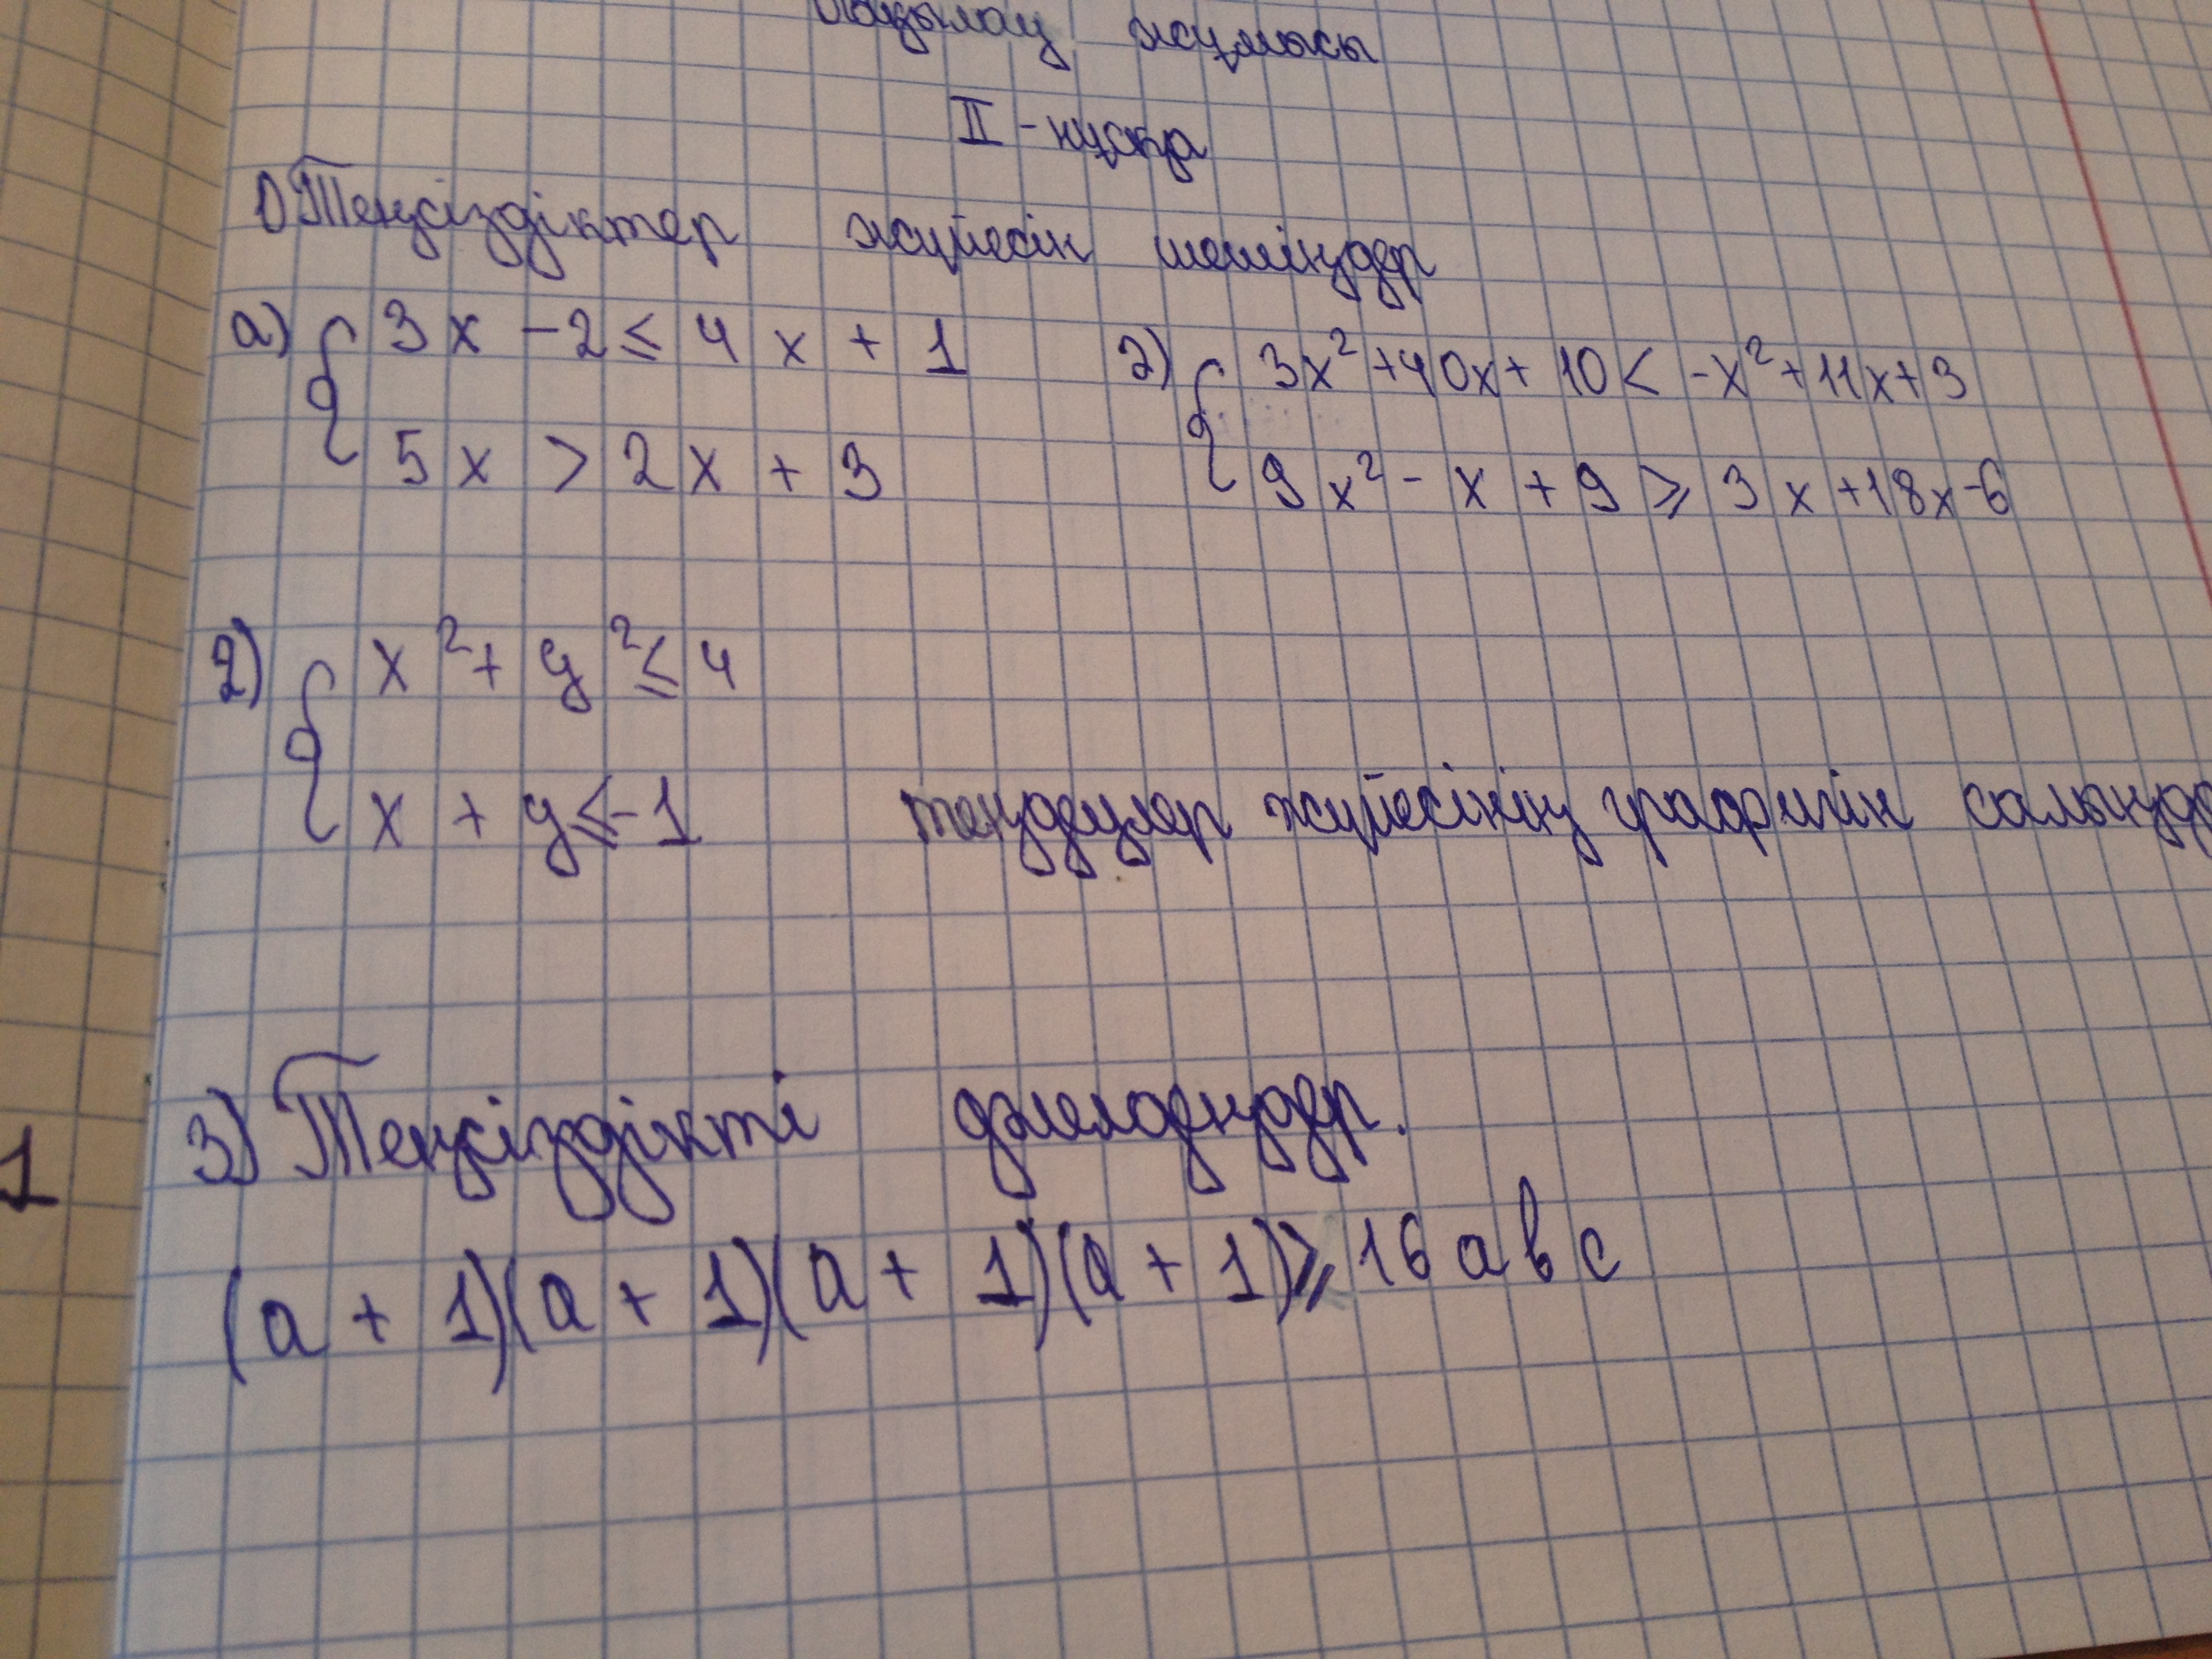 жұмысы
II - нұсқа
1) Теңсіздіктер жүйесін шешіңдер
а) { 3x - 2 ≤ 4x + 1
5x > 2x + 3
2) { 3x² + 40x + 10 < -x² + 11x + 3
9x² - x + 9 ≥ 3x + 18x - 6
2) { x² + y² ≤ 4
x + y ≤ -1 теңдеулер жүйесінің графигін
3) Теңсіздікті дәлелдеңдер.
1
(a + 1)(a + 1)(a + 1)(a + 1) ≥ 16 a b c